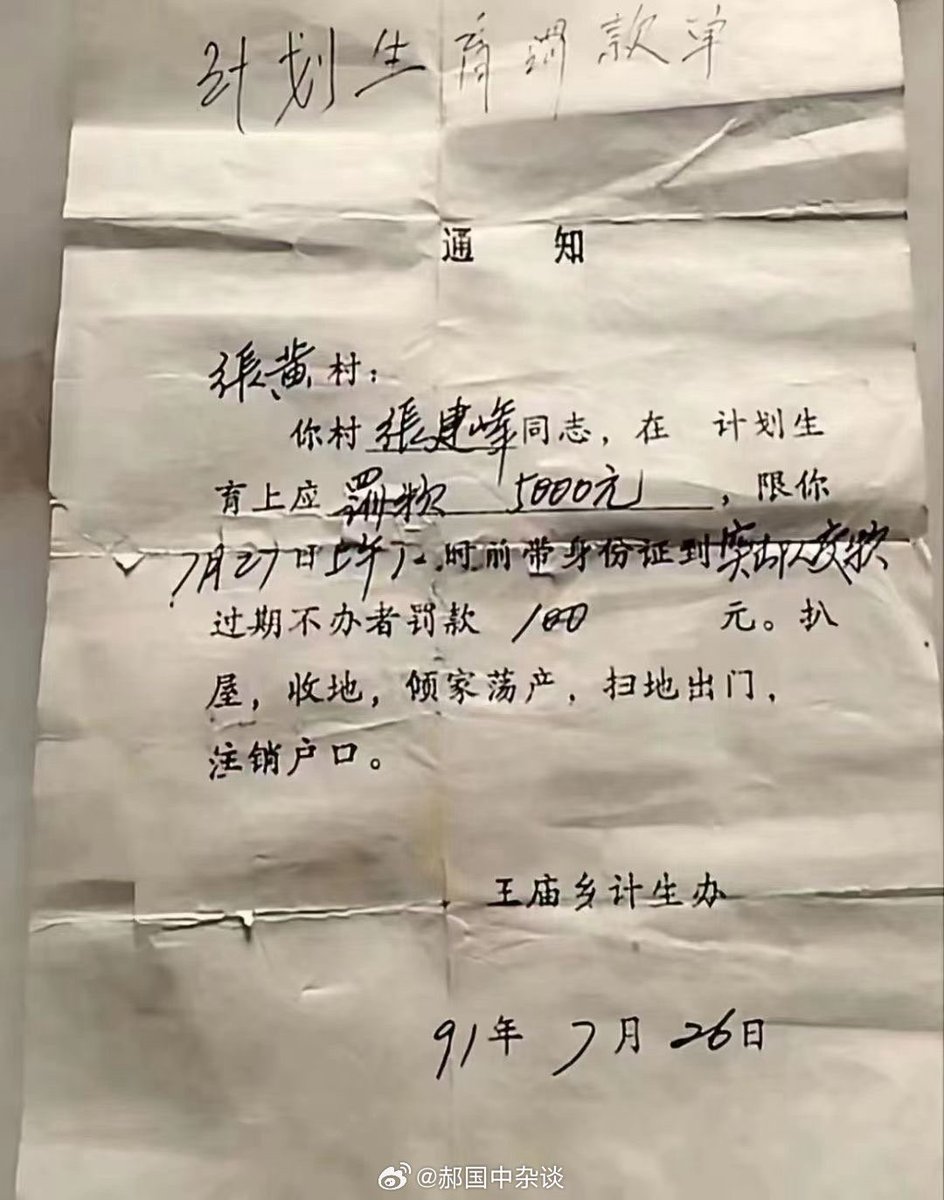 计划生育罚款单
通 知
张黄村：
你村张建峰同志，在 计划生
育上应罚款 5000元，限你
7月27日上午12时前带身份证到突击队交款
过期不办者罚款 100 元。扒
屋，收地，倾家荡产，扫地出门，
注销户口。
王庙乡计生办
91年 7月 26日
@郝国中杂谈